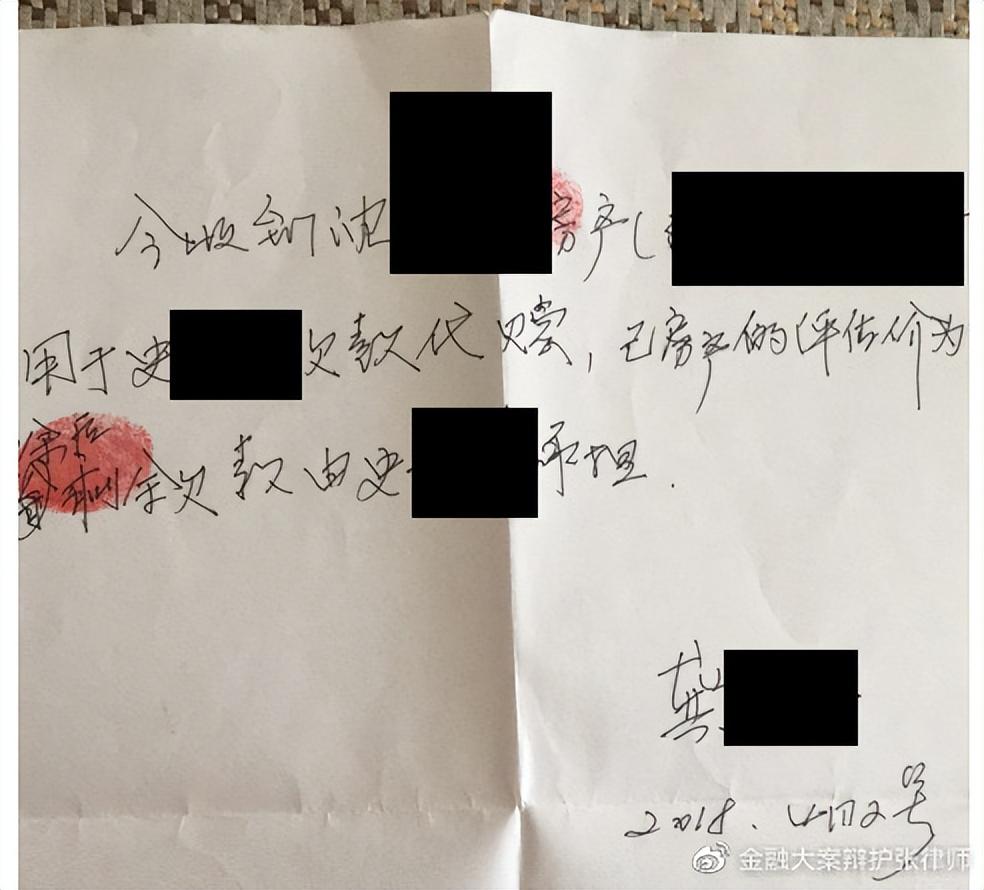 今收到沈 房产(
用于史 欠款代偿,已房产的评估价为
剩余欠款由史 承担.
龚
2018.4月2号
金融大案辩护张律师